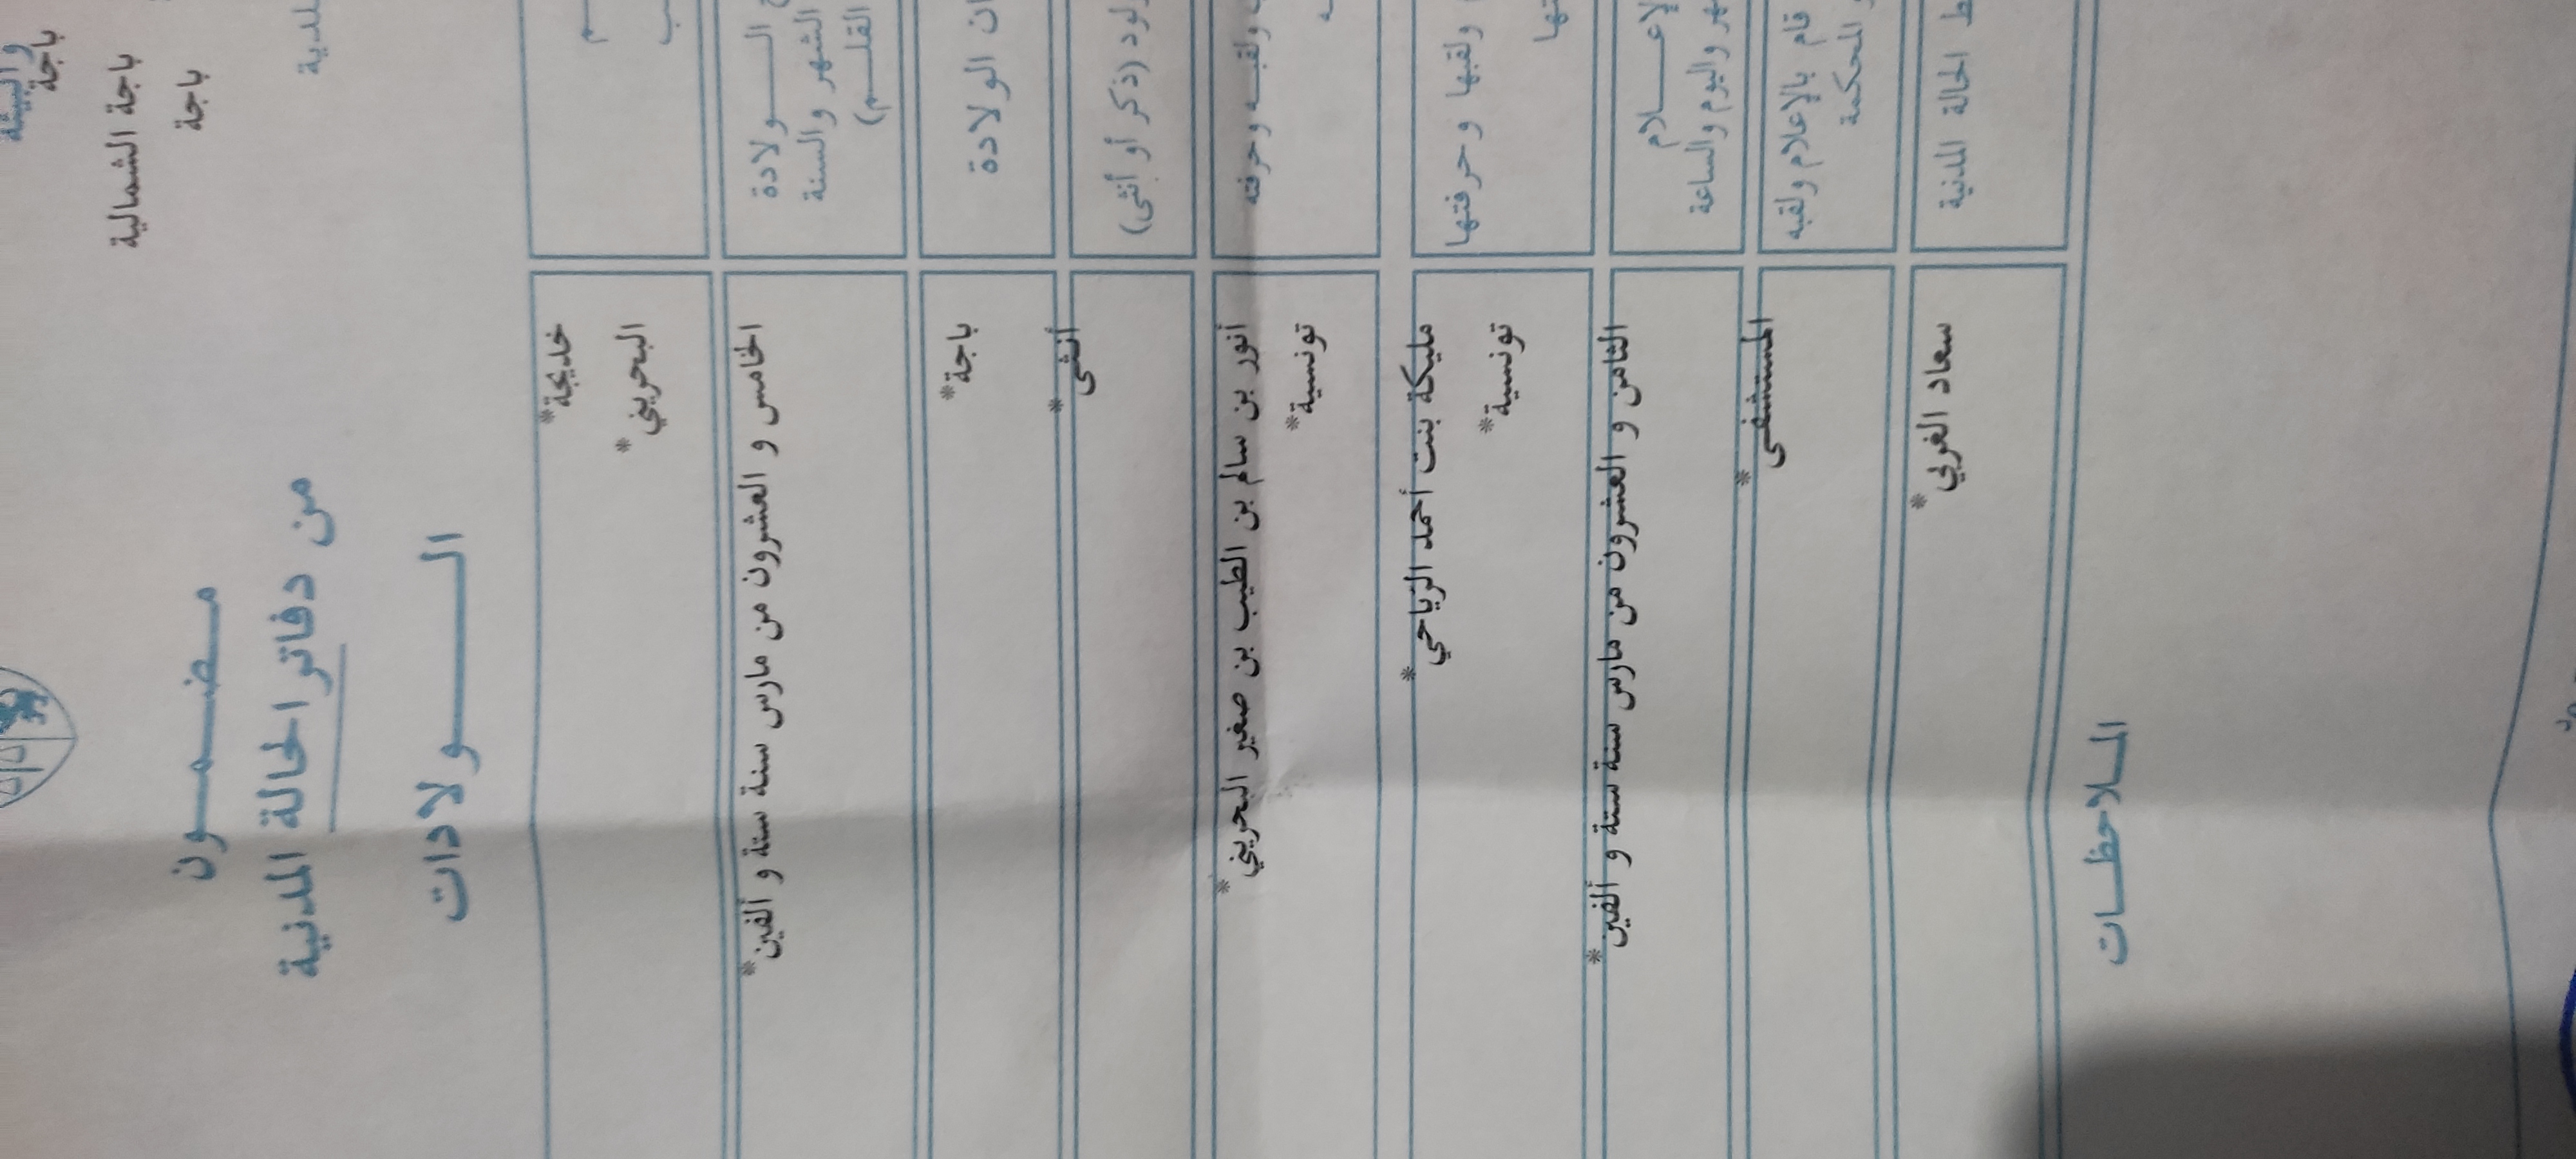 والبيئة
باجة
باجة الشمالية
باجة
مضمون
من دفاتر الحالة المدنية
الولادات
خديجة*
البحريني*
الولادة
الشهر والسنة
القلم)
الخامس و العشرون من مارس سنة ستة و ألفين*
الولادة
باجة*
(ذكر أو أنثى)
أنثى*
ولقبه وحرفته
أنور بن سالم بن الطيب بن صغير البحريني*
تونسية*
ولقبها و حرفتها
مليكة بنت أحمد الرياحي*
تونسية*
واليوم والساعة
الثامن و العشرون من مارس سنة ستة و ألفين*
قام بالإعلام ولقبه
المحكمة
المستشفى*
الحالة المدنية
سعاد الغربي*
الملاحظات